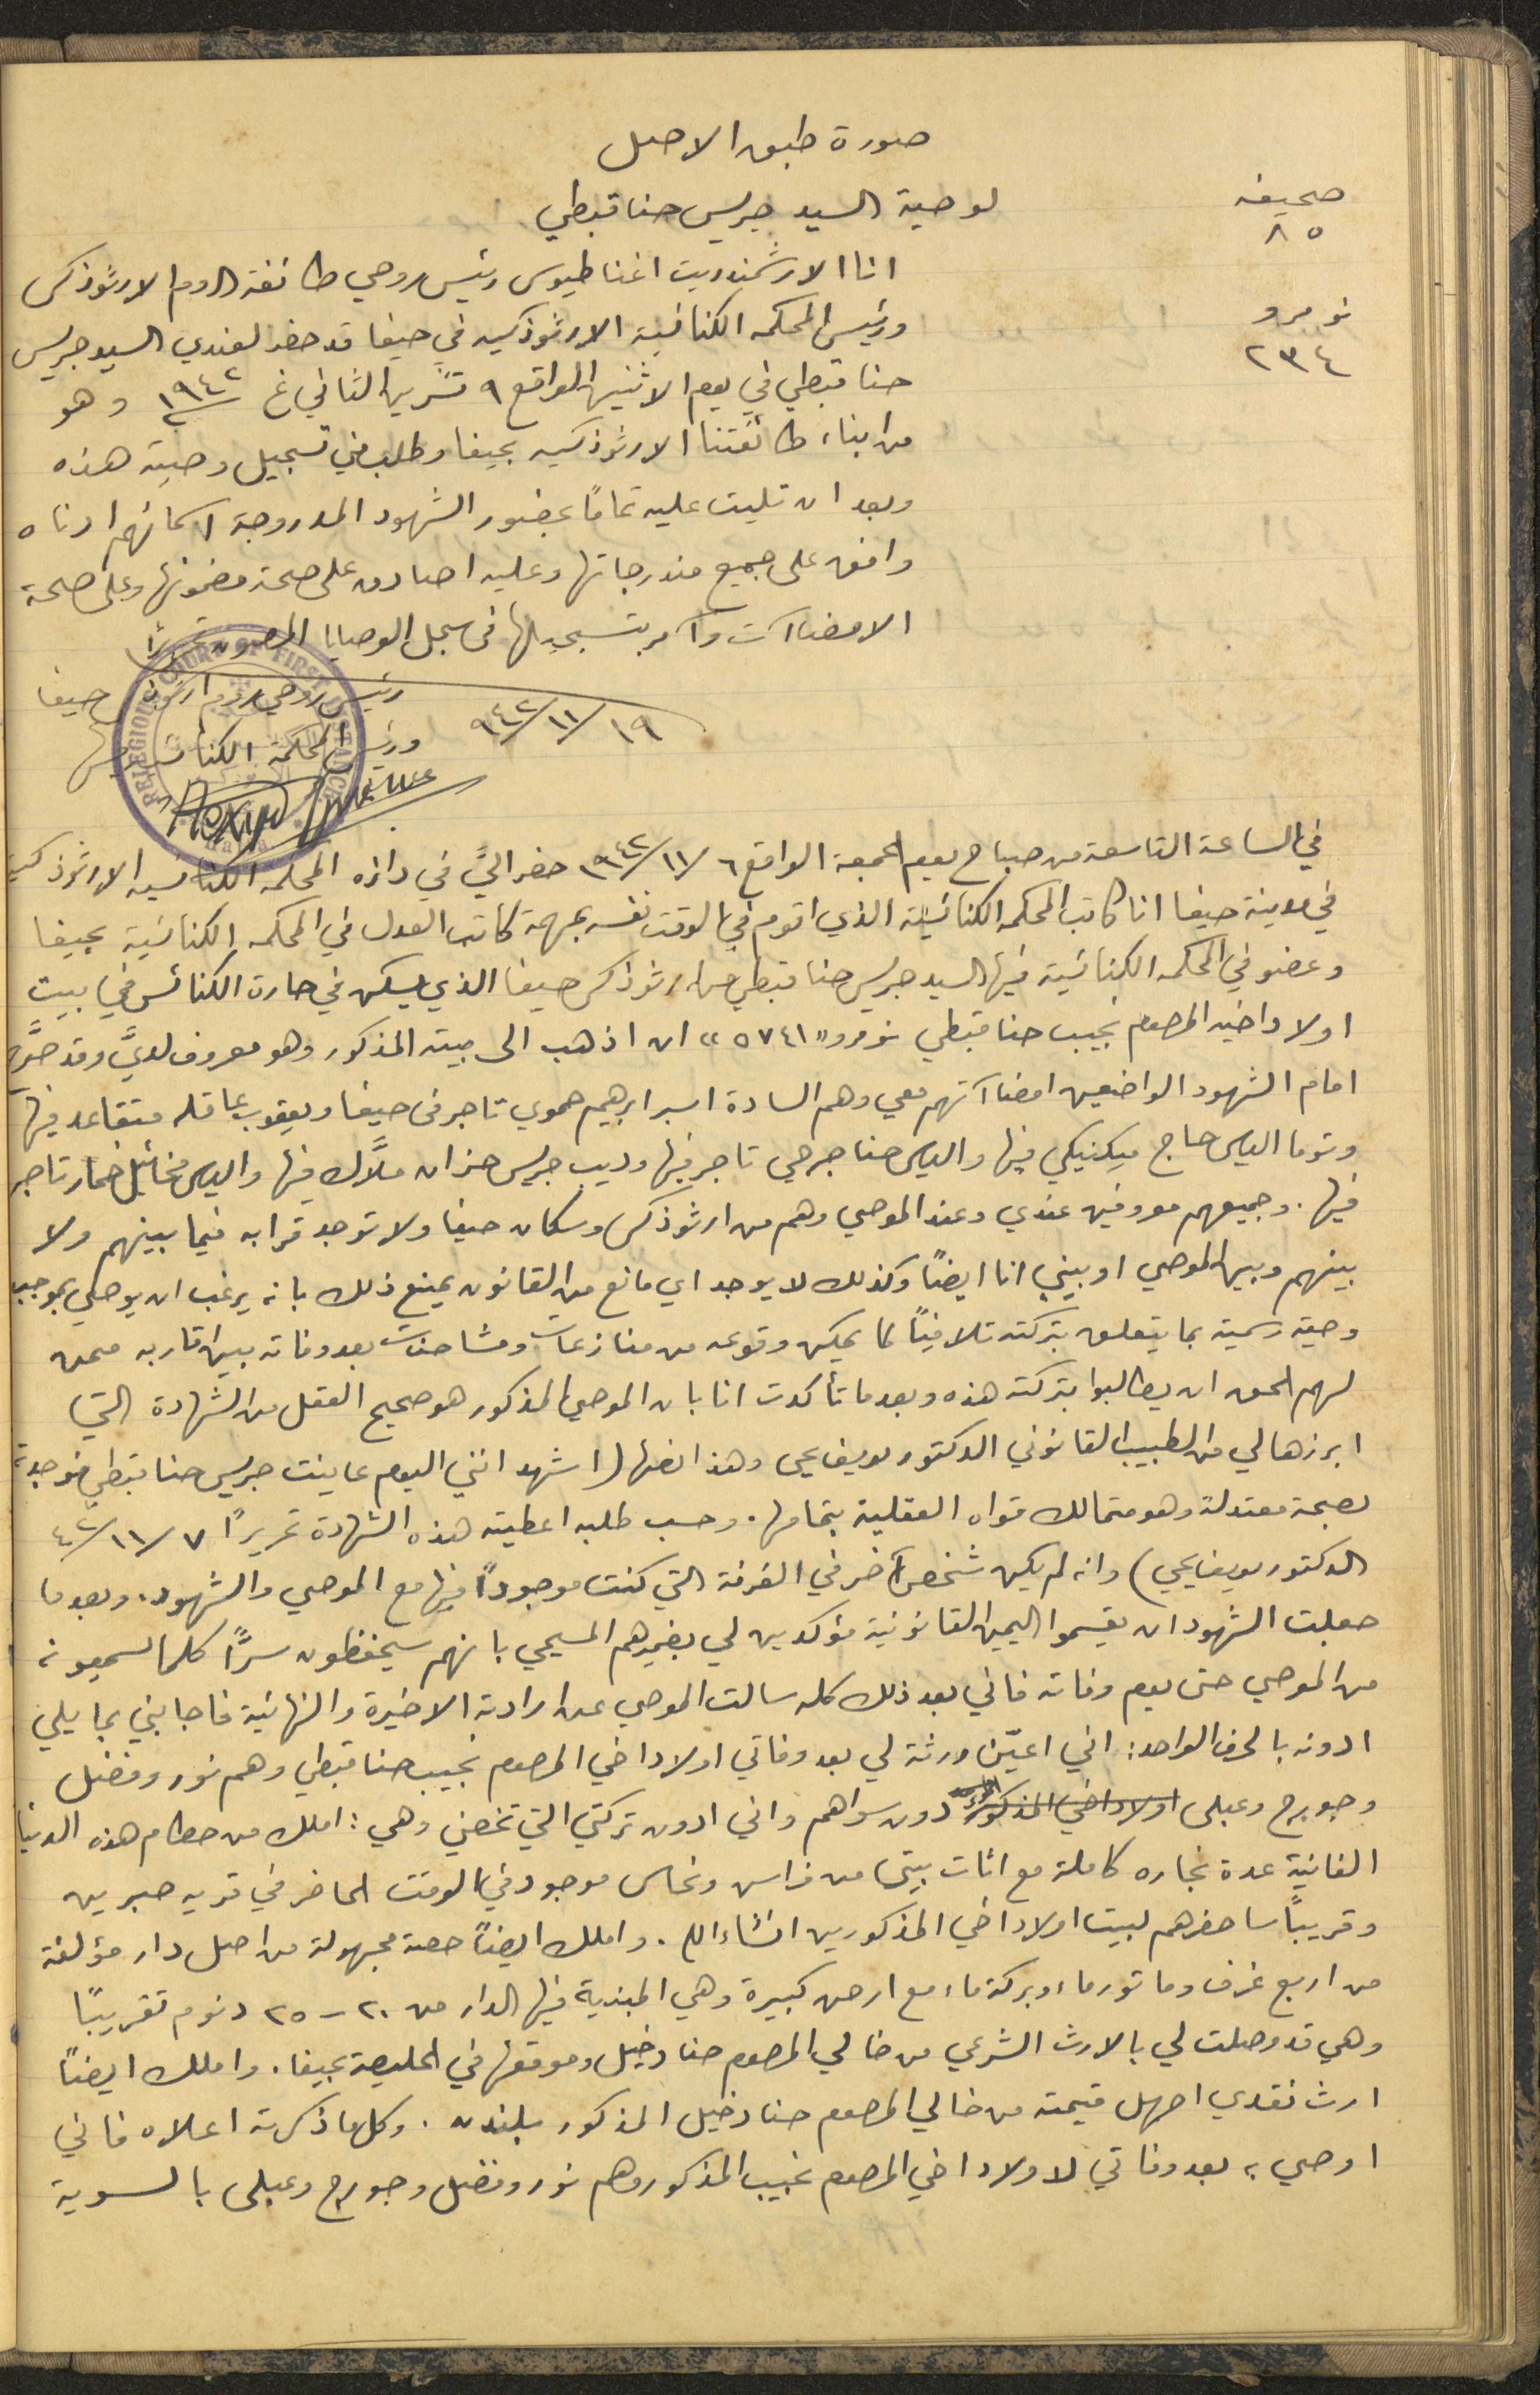 صورة طبق الاصل
صحيفه
٨٥
لوصية السيد جريس حنا قبطي
نومرو
٢٣٤
انا الارشمندريت اغناطيوس رئيس روحي طائفة الروم الارثوذكس
ورئيس المحكمه الكنائسية الارثوذكسيه في حيفا قد حضر لعندي السيد جريس
حنا قبطي في يوم الاثنين الواقع ٩ تشرين الثاني غ سنة ١٩٤٢ وهو
من ابناء طائفتنا الارثوذكسيه بحيفا وطلب مني تسجيل وصيته هذه
وبعد ان تليت عليه تماماً بحضور الشهود المدروجة اسمائهم ادناه
وافق على جميع مندرجاتها وعليه اصادق على صحة مضمونها وعلى صحة
الامضاآت وآمر بتسجيلها في سجل الوصايا المصون تحريراً
١٩/١١/٩٤٢
رئيس روحي روم ارثوذكس حيفا
ورئيس المحكمة الكنائسية فيها
RELIGIOUS COURT OF FIRST INSTANCE
Haifa
في الساعة التاسعة من صباح يوم الجمعة الواقع ٦/١١/١٩٤٢ حضر اليَّ في دائره المحكمه الكنائسيه الارثوذكسية
في مدينة حيفا انا كاتب المحكمه الكنائسيّة الذي اقوم في الوقت نفسه بمهمة كاتب العدل في المحكمه الكنائسية بحيفا
وعضو في المحكمه الكنائسية فيها السيد جريس حنا قبطي من ارثوذكس حيفا الذي يسكن في حارة الكنائس في بيت
اولاد اخيه المرحوم نجيب حنا قبطي نومرو «٥٧٤١» ان اذهب الى بيته المذكور وهو معروف لديَّ وقد صرَّح
امام الشهود الواضعين امضاآتهم معي وهم السادة اسبر ابرهيم حموي تاجر في حيفا ويعقوب عاقله متقاعد فيها
وتوما الياس حاج ميكنيكي فيها والياس حنا جرجي تاجر فيها وديب جريس حزان ملَّاك فيها والياس مخائيل خمار تاجر
فيها. وجميعهم معروفين عندي وعند الموصي وهم من ارثوذكس وسكان حيفا ولا توجد قرابه فيما بينهم ولا
بينهم وبين الموصي او بيني انا ايضاً وكذلك لا يوجد اي مانع من القانون يمنع ذلك بانه يرغب ان يوصي بموجب
وصية رسمية بما يتعلق بتركته تلافياً لما يمكن وقوعه من منازعات ومشاحنات بعد وفاته بين اقاربه ممن
لهم الحق ان يطالبوا بتركته هذه وبعد ما تأكدت انا بان الموصي المذكور هو صحيح العقل من الشهادة التي
ابرزها لي من الطبيب القانوني الدكتور يوسف يحيى وهذا نصها (اشهد انني اليوم عاينت جريس حنا قبطي فوجدته
بصحة معتدلة وهو متمالك قواه العقلية بتمامها. وحسب طلبه اعطيته هذه الشهادة تحريراً ٧/١١/٤٢
الدكتور يوسف يحيى) وانه لم يكن شخص آخر في الغرفة التي كنت موجوداً فيها مع الموصي والشهود. وبعد ما
جعلت الشهود ان يقسموا اليمين القانونية مؤكدين لي بضميرهم المسيحي بانهم سيحفظون سرًّا كلما سمعونه
من الموصي حتى يوم وفاته فاني بعد ذلك كله سالت الموصي عن ارادته الاخيرة والنهائية فاجابني بما يلي
ادونه بالحرف الواحد: اني اعيّن ورثة لي بعد وفاتي اولاد اخي المرحوم نجيب حنا قبطي وهم نور وفضل
وجورج وعبلى اولاد اخي المذكور دون سواهم واني ادون تركتي التي تخصني وهي: املك من حطام هذه الدنيا
الفانية عدة نجاره كاملة مع اثاث بيتي من فراس ونحاس موجود في الوقت الحاضر في قريه صبرين
وقريباً ساحضرهم لبيت اولاد اخي المذكورين انشاء الله. واملك ايضاً حصة مجهولة من اصل دار مؤلفة
من اربع غرف وماتور ماء وبركة ماء مع ارض كبيرة وهي المبنية فيها الدار من ٢٠ - ٢٥ دنوم تقريباً
وهي قد وصلت لي بالارث الشرعي من خالي المرحوم حنا دخيل وموقعها في الحليصة بحيفا. واملك ايضاً
ارث نقدي اجهل قيمته من خالي المرحوم حنا دخيل المذكور بلندن. وكل ما ذكرته اعلاه فاني
اوصي به بعد وفاتي لاولاد اخي المرحوم نجيب المذكور وهم نور وفضل وجورج وعبلى بالسوية